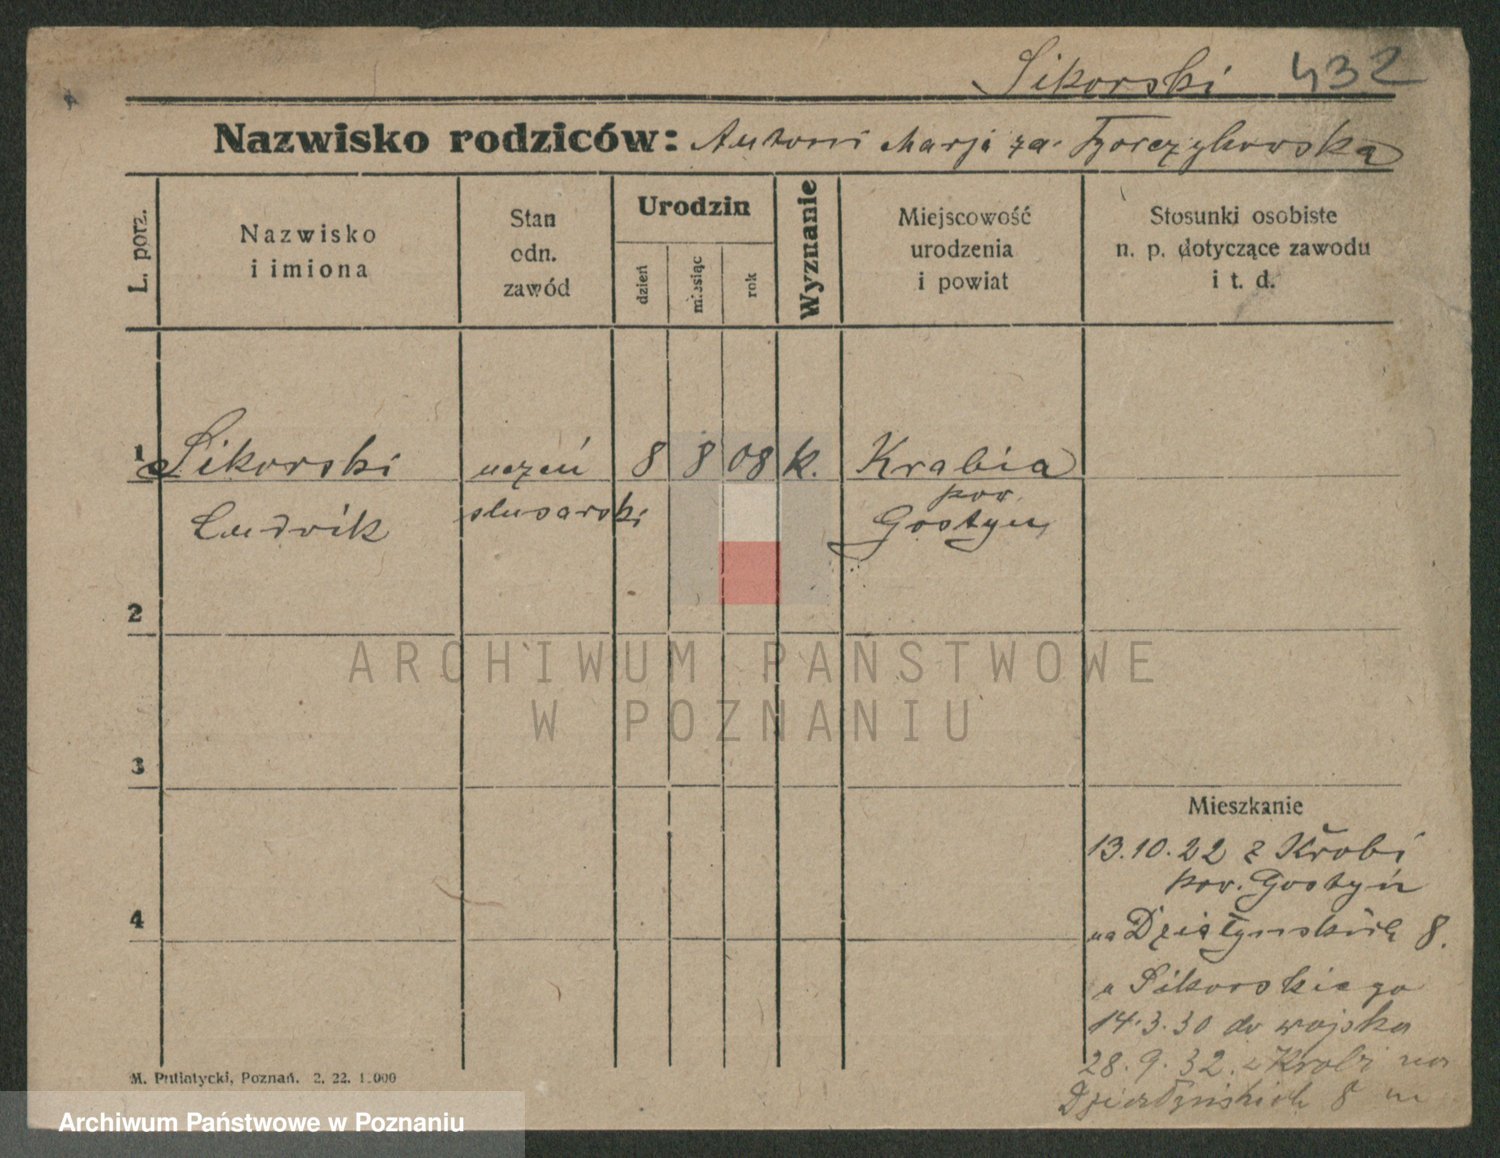 Sikorski 432
Nazwisko rodziców: Antoni Marja za.
L. porz.
Nazwisko
i imiona
Stan
odn.
zawód
Urodzin
dzień
miesiąc
rok
Wyznanie
Miejscowość
urodzenia
i powiat
Stosunki osobiste
n. p. dotyczące zawodu
i t. d.
1 Sikorski uczeń 8 8 08 k. Krobia
Ludwik slusarski pow.
Gostyn
2
3
4
Mieszkanie
13.10.22 z Krobi
pow. Gostyń
na Działyńskich 8.
u Sikorskiego
14.3.30 do wojska
28.9.32. z Krobi na
Działyńskich 8 m
M. Putiatycki, Poznań. 2. 22. 1.000
ARCHIWUM PANSTWOWE
W POZNANIU
Archiwum Państwowe w Poznaniu